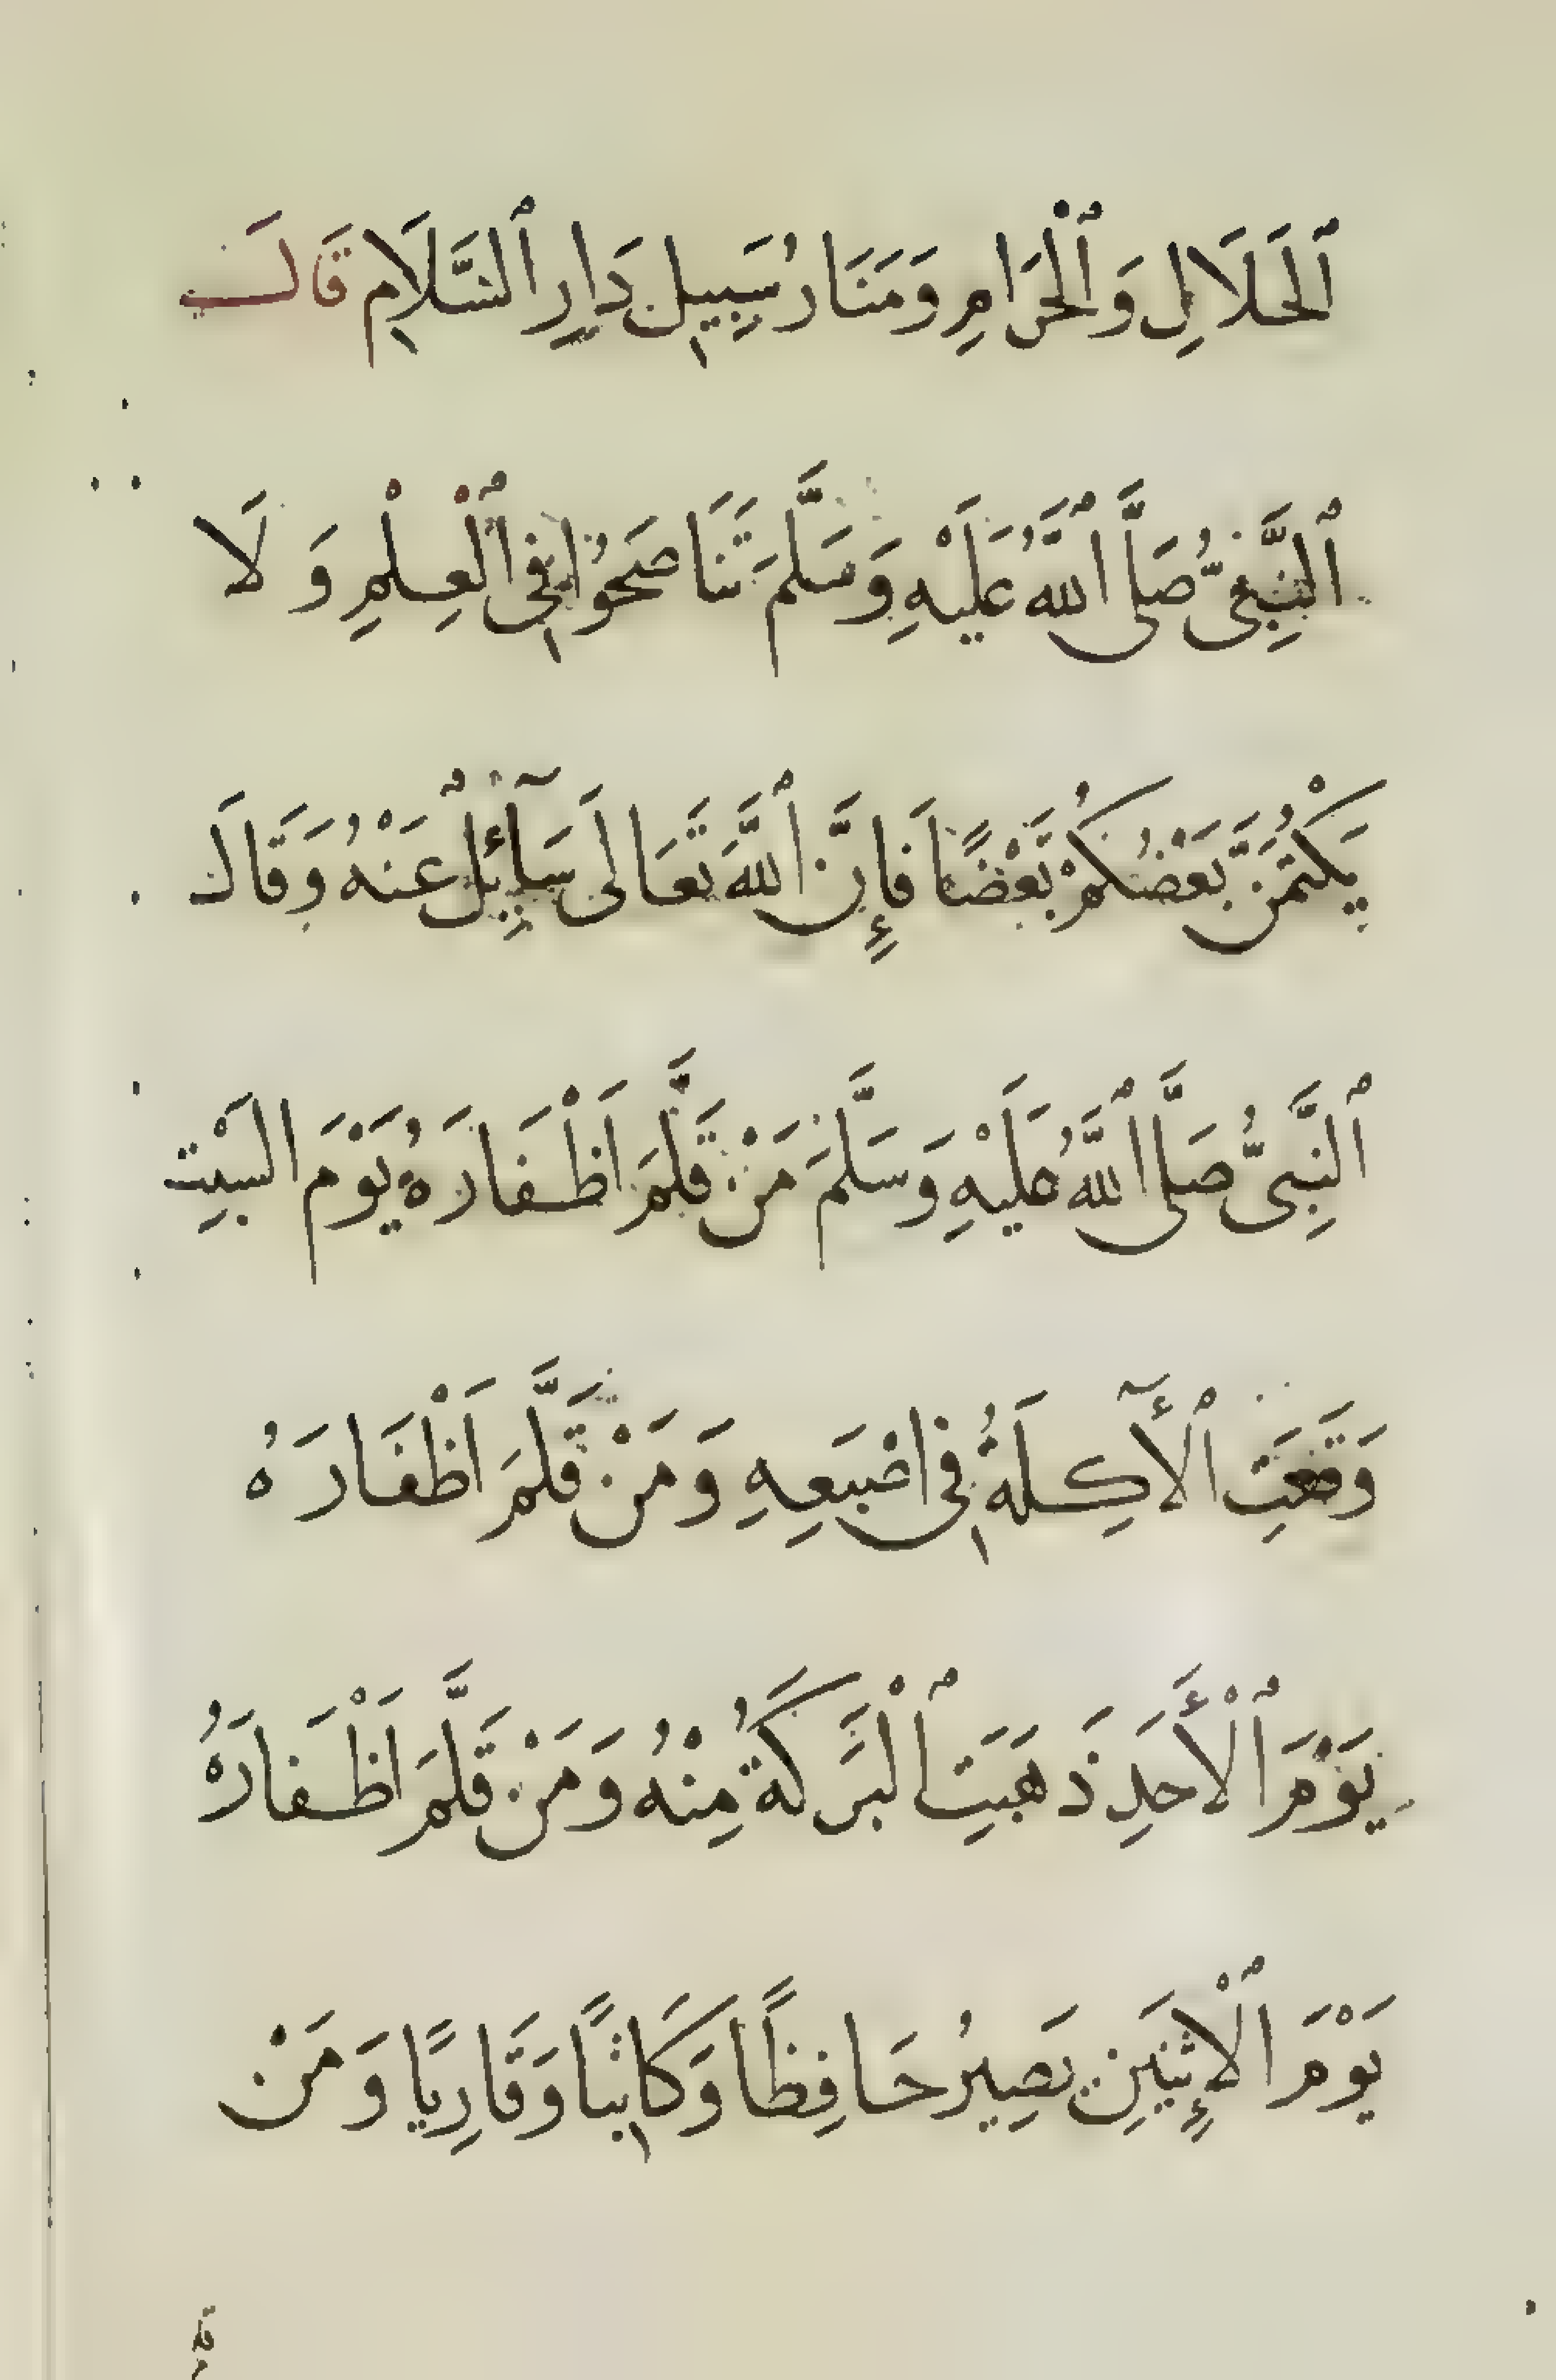 ٱلْحَلَالِ وَٱلْحَرَامِ وَمَنَارُ سَبِيلِ دَارِ ٱلسَّلَامِ قَالَ
ٱلنَّبِيُّ صَلَّى ٱللَّهُ عَلَيْهِ وَسَلَّمَ تَنَاصَحُوا فِى ٱلْعِلْمِ وَ لَا
يَكْتُمَنَّ بَعْضُكُمْ بَعْضًا فَإِنَّ ٱللَّهَ تَعَالَى سَآئِلٌ عَنْهُ وَقَالَ
ٱلنَّبِىُّ صَلَّى ٱللَّهُ عَلَيْهِ وَسَلَّمَ مَنْ قَلَّمَ اَظْفَارَهُ يَوْمَ السَّبْتِ
وَقَعَتِ ٱلْأٓكِلَةُ فِى اصْبَعِهِ وَمَنْ قَلَّمَ اَظْفَارَهُ
يَوْمَ ٱلْأَحَدِ ذَهَبَتِ ٱلْبَرَكَةُ مِنْهُ وَمَنْ قَلَّمَ اَظْفَارَهُ
يَوْمَ ٱلْإِثْنَيْنِ يَصِيرُ حَافِظًا وَكَاتِبًا وَقَارِيًا وَمَنْ
قلم